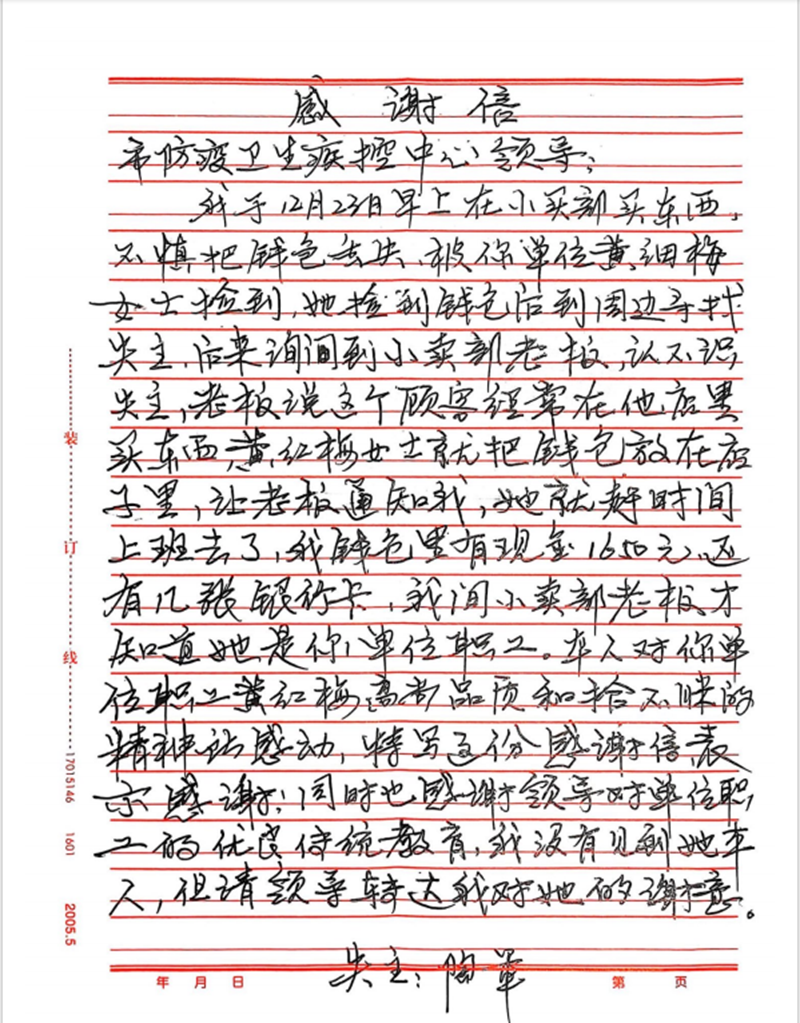 感谢信
市防疫卫生疾控中心领导：
我于12月23日早上在小买部买东西，
不慎把钱包丢失，被你单位黄细梅
女士捡到，她捡到钱包后到周边寻找
失主，后来询问到小卖部老板，认不识
失主，老板说这个顾客经常在他店里
买东西，黄红梅女士就把钱包放在店
子里，让老板通知我，她就赶时间
上班去了，我钱包里有现金1650元，还
有几张银行卡，我问小卖部老板才
知道她是你单位职工。本人对你单
位职工黄红梅高尚品质和拾不昧的
精神所感动，特写这份感谢信表
示感谢！同时也感谢领导对单位职
工的优良传统教育，我没有见到她本
人，但请领导转达我对她的谢意。
失主：陶军
年 月 日
第 页
装
订
线
17015146 1601 2005.5